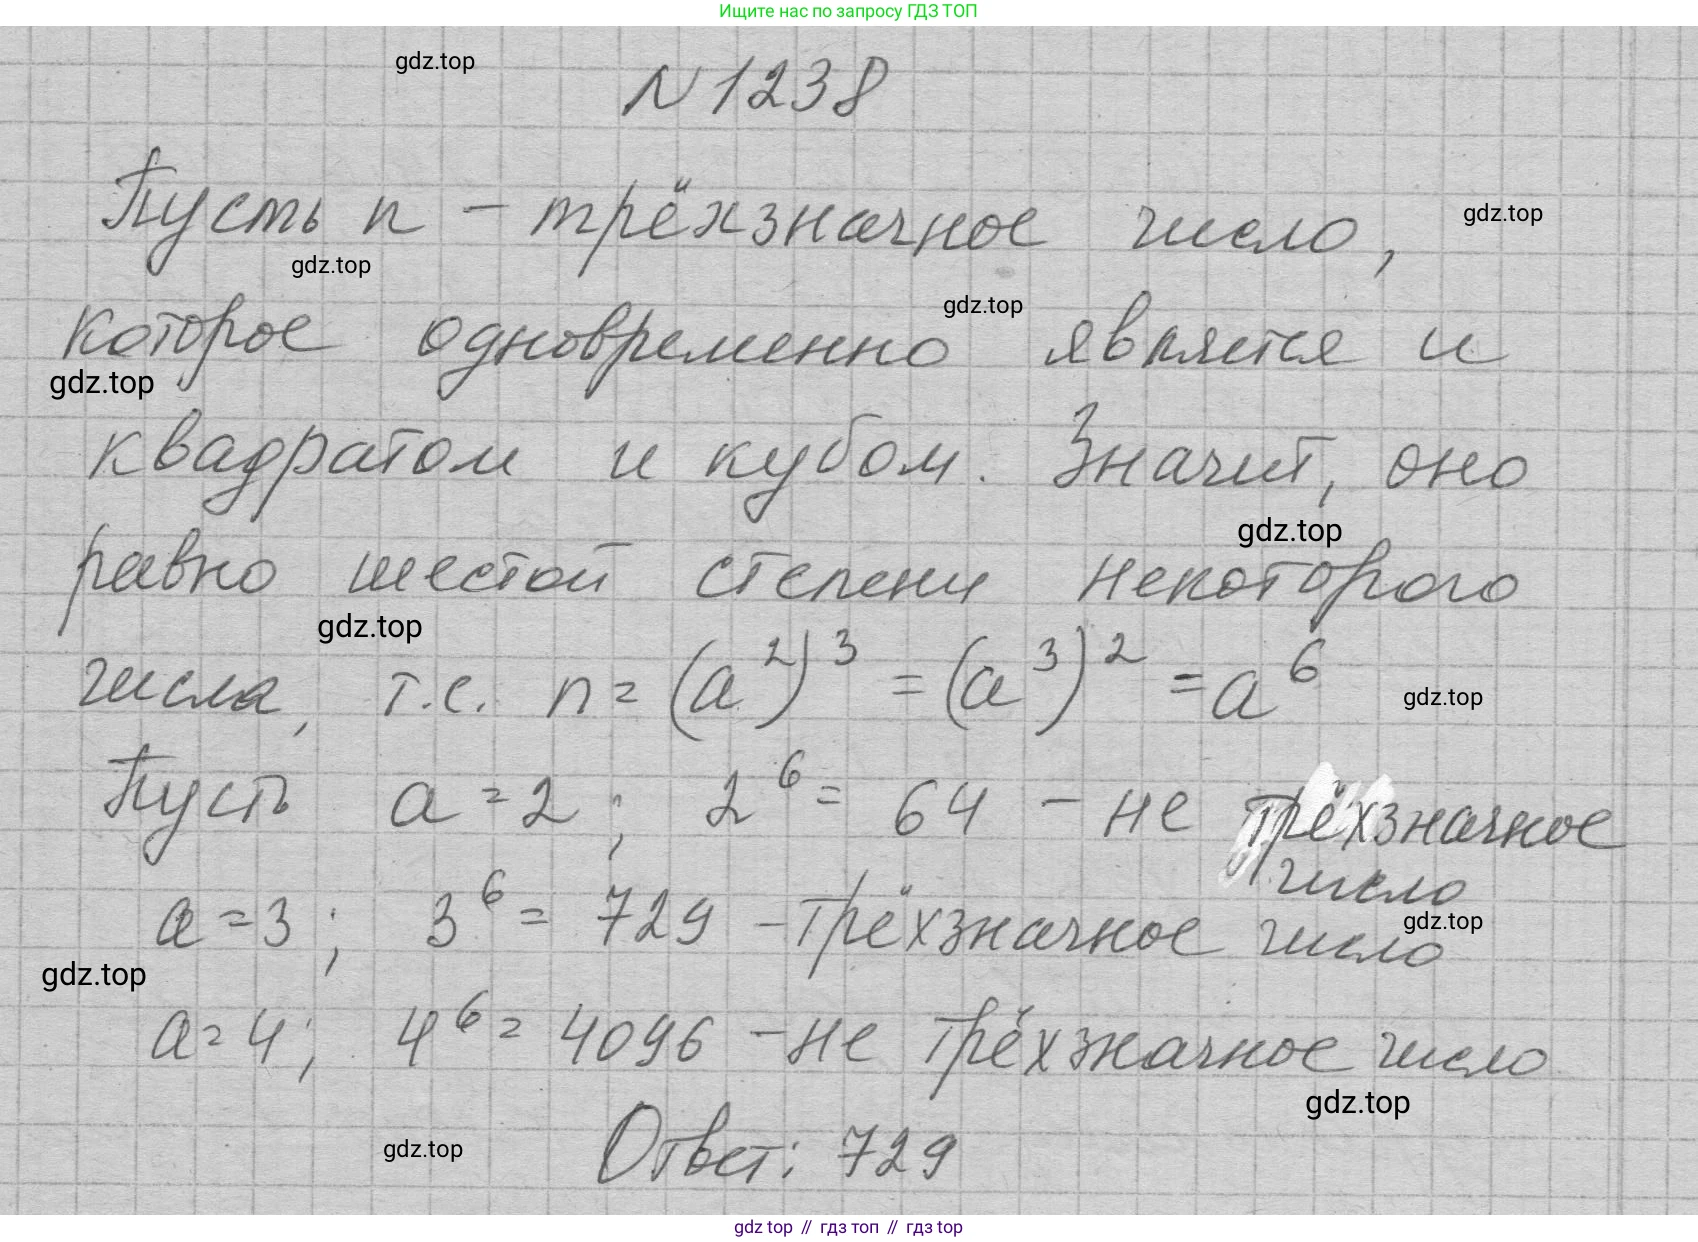 Ищите нас по запросу ГДЗ ТОП
gdz.top
N 1238
Пусть n - трёхзначное число,
gdz.top
gdz.top
gdz.top
которое одновременно является и
gdz.top
квадратом и кубом. Значит, оно
gdz.top
равно шестой степени некоторого
gdz.top
числа, т.е. n = (a²)³ = (a³)² = a⁶
gdz.top
Пусть a = 2; 2⁶ = 64 - не трёхзначное
число
a = 3; 3⁶ = 729 - трёхзначное число
gdz.top
gdz.top
a = 4; 4⁶ = 4096 - не трёхзначное число
gdz.top
Ответ: 729
gdz.top
gdz.top // гдз топ // гдз top